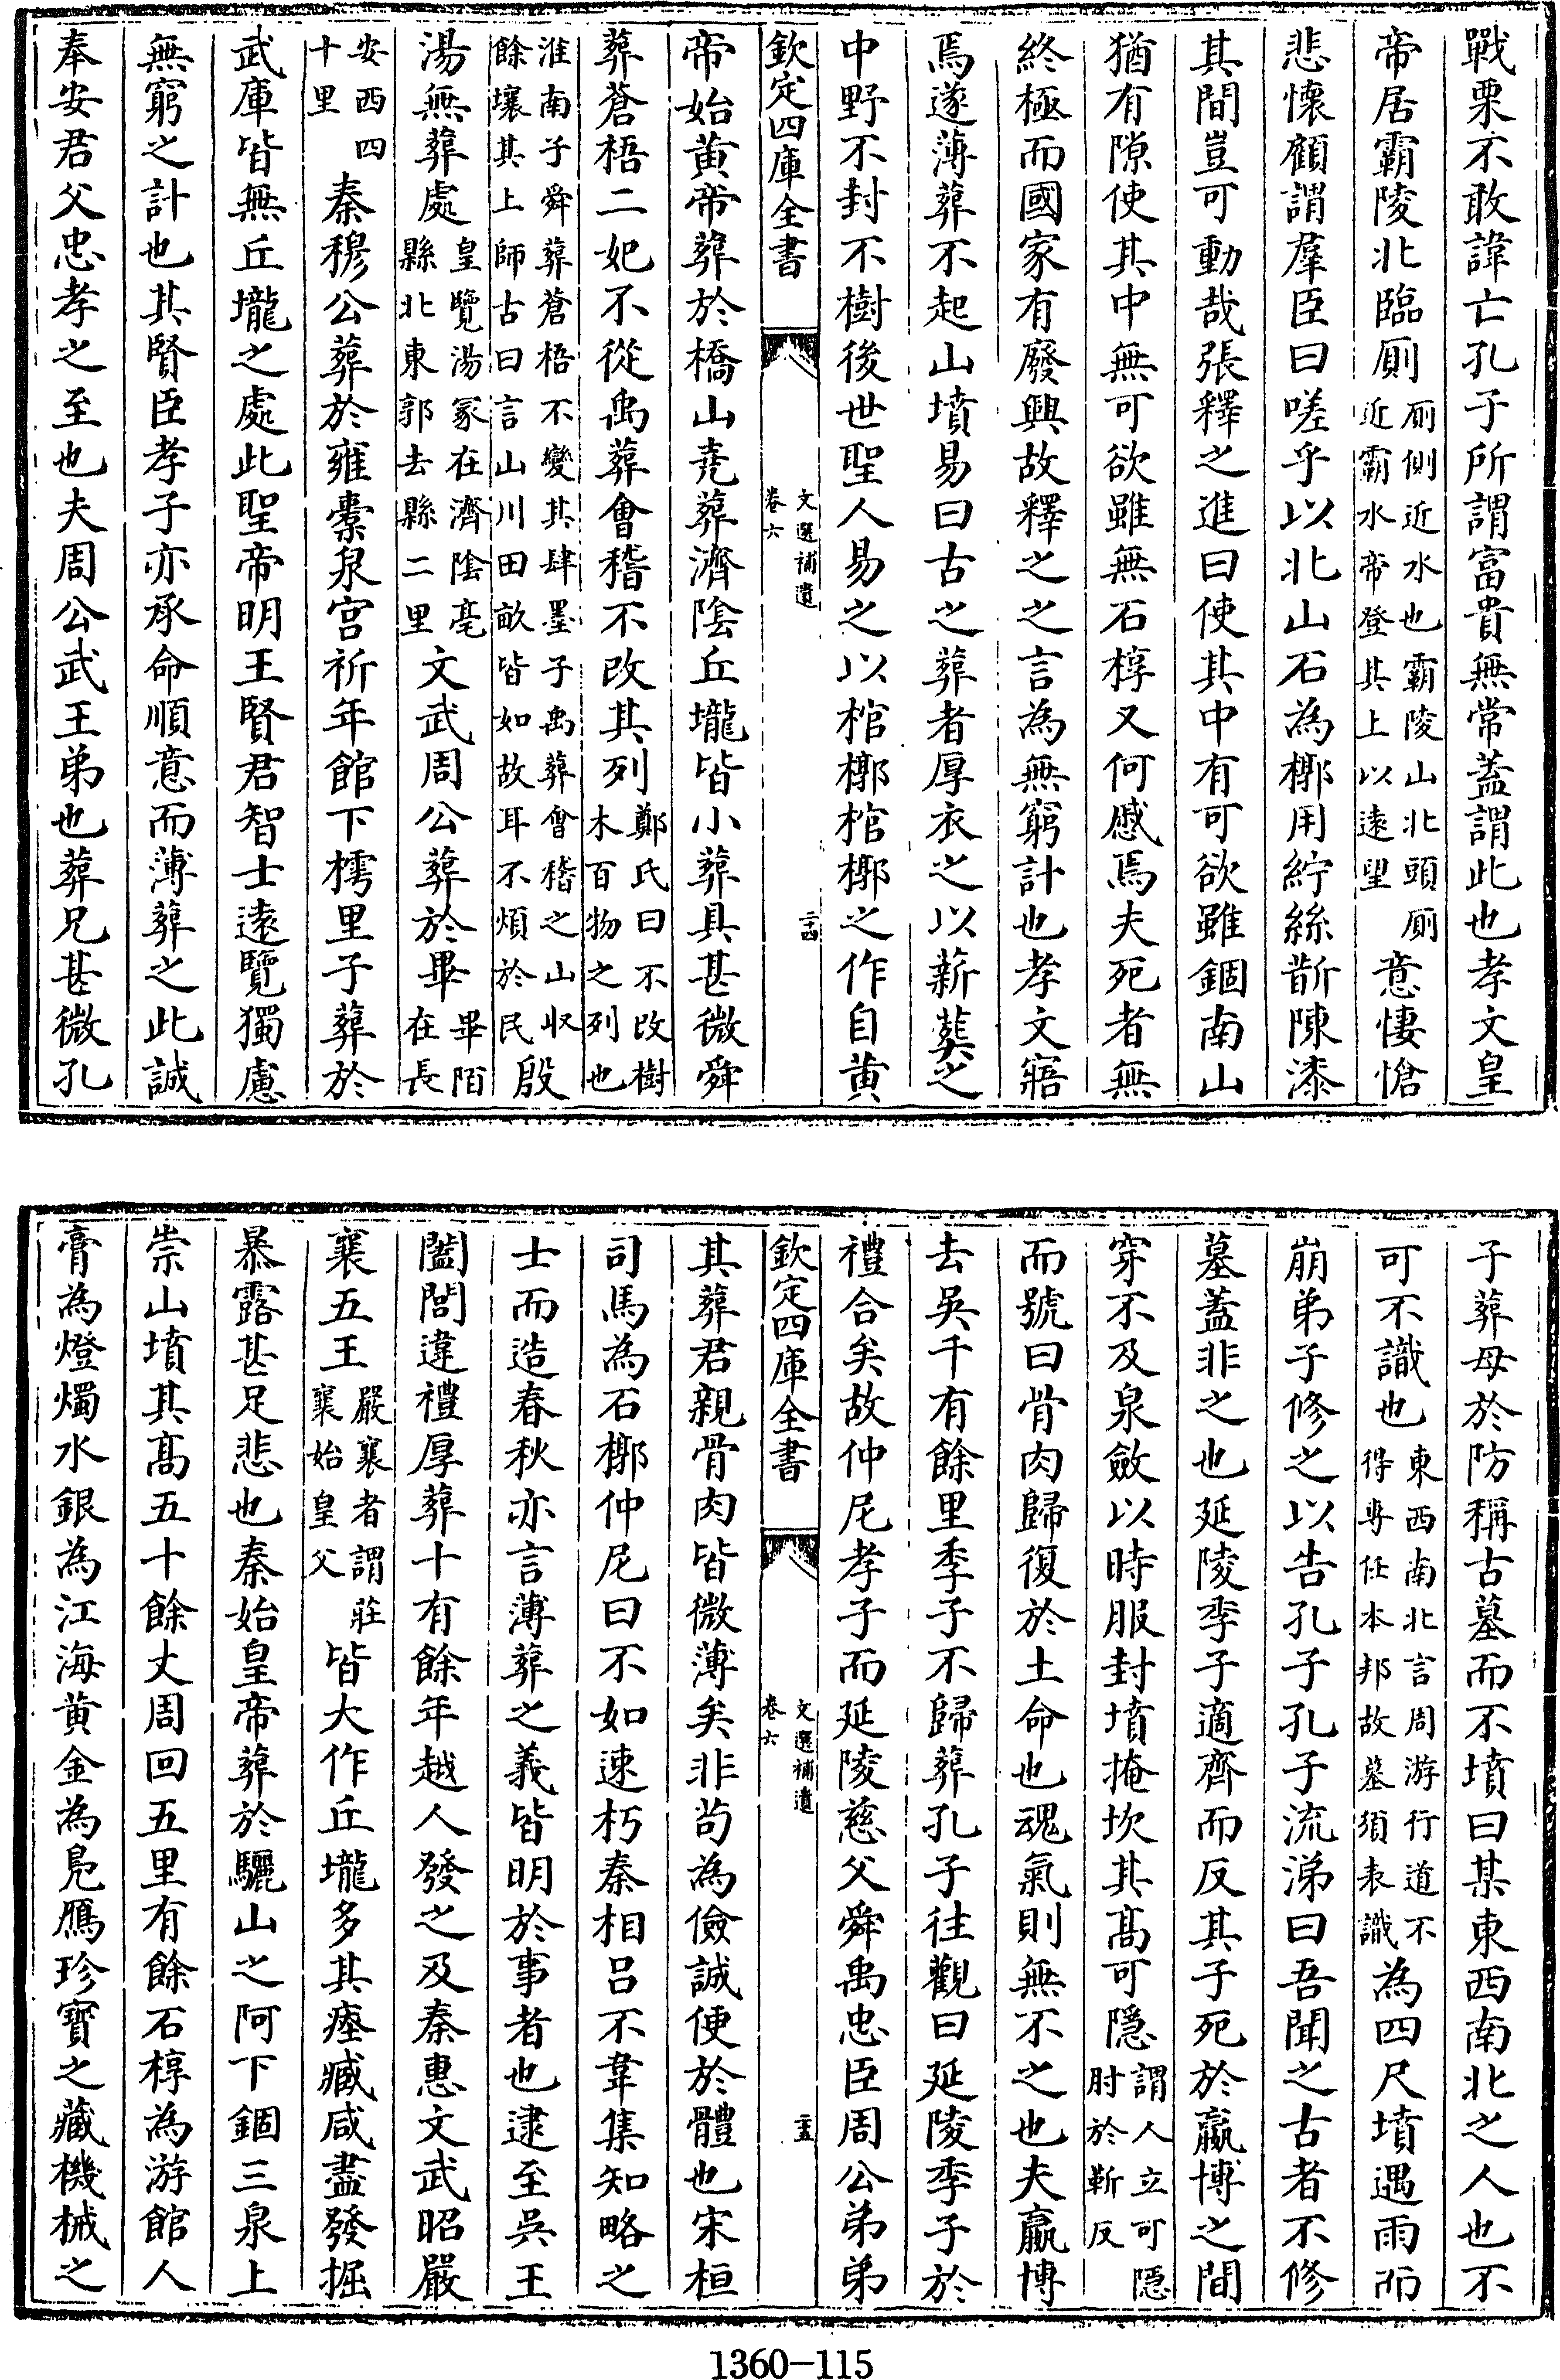 戰栗不敢諱亡孔子所謂富貴無常葢謂此也孝文皇
帝居霸陵北臨厠厠側近水也霸陵山北頭厠近霸水帝登其上以遠望意悽愴
悲懷顧謂羣臣曰嗟乎以北山石為槨用紵絮斮陳漆
其間豈可動哉張釋之進曰使其中有可欲雖錮南山
猶有隙使其中無可欲雖無石椁又何慼焉夫死者無
終極而國家有廢興故釋之之言為無窮計也孝文寤
焉遂薄葬不起山墳易曰古之葬者厚衣之以薪葬之
中野不封不樹後世聖人易之以棺槨棺槨之作自黄
欽定四庫全書
文選補遺
卷六
二十四
帝始黄帝葬於橋山堯葬濟隂丘壠皆小葬具甚微舜
葬蒼梧二妃不從禹葬會稽不改其列鄭氏曰不改樹木百物之列也
淮南子舜葬蒼梧不變其肆墨子禹葬會稽之山収餘壤其上師古曰言山川田畝皆如故耳不煩於民殷
湯無葬處皇覽湯冡在濟隂亳縣北東郭去縣二里文武周公葬於畢畢陌在長
安西四十里秦穆公葬於雍橐泉宫祈年館下樗里子葬於
武庫皆無丘壠之處此聖帝明王賢君智士遠覽獨慮
無窮之計也其賢臣孝子亦承命順意而薄葬之此誠
奉安君父忠孝之至也夫周公武王弟也葬兄甚微孔
子葬母於防稱古墓而不墳曰某東西南北之人也不
可不識也東西南北言周游行道不得専任本邦故墓須表識為四尺墳遇雨而
崩弟子修之以告孔子孔子流涕曰吾聞之古者不修
墓蓋非之也延陵季子適齊而反其子死於嬴博之間
穿不及泉斂以時服封墳掩坎其髙可隠謂人立可隠肘於靳反
而號曰骨肉歸復於土命也魂氣則無不之也夫嬴博
去吳千有餘里季子不歸葬孔子往觀曰延陵季子於
禮合矣故仲尼孝子而延陵慈父舜禹忠臣周公弟弟
欽定四庫全書
文選補遺
卷六
二十五
其葬君親骨肉皆微薄矣非茍為儉誠便於體也宋桓
司馬為石槨仲尼曰不如速朽秦相呂不韋集知略之
士而造春秋亦言薄葬之義皆明於事者也逮至吳王
闔閭違禮厚葬十有餘年越人發之及秦惠文武昭嚴
襄五王嚴襄者謂莊襄始皇父皆大作丘壠多其瘞臧咸盡發掘
暴露甚足悲也秦始皇帝葬於驪山之阿下錮三泉上
崇山墳其髙五十餘丈周回五里有餘石椁為游館人
膏為燈燭水銀為江海黄金為鳬鴈珍寳之藏機械之
1360-115